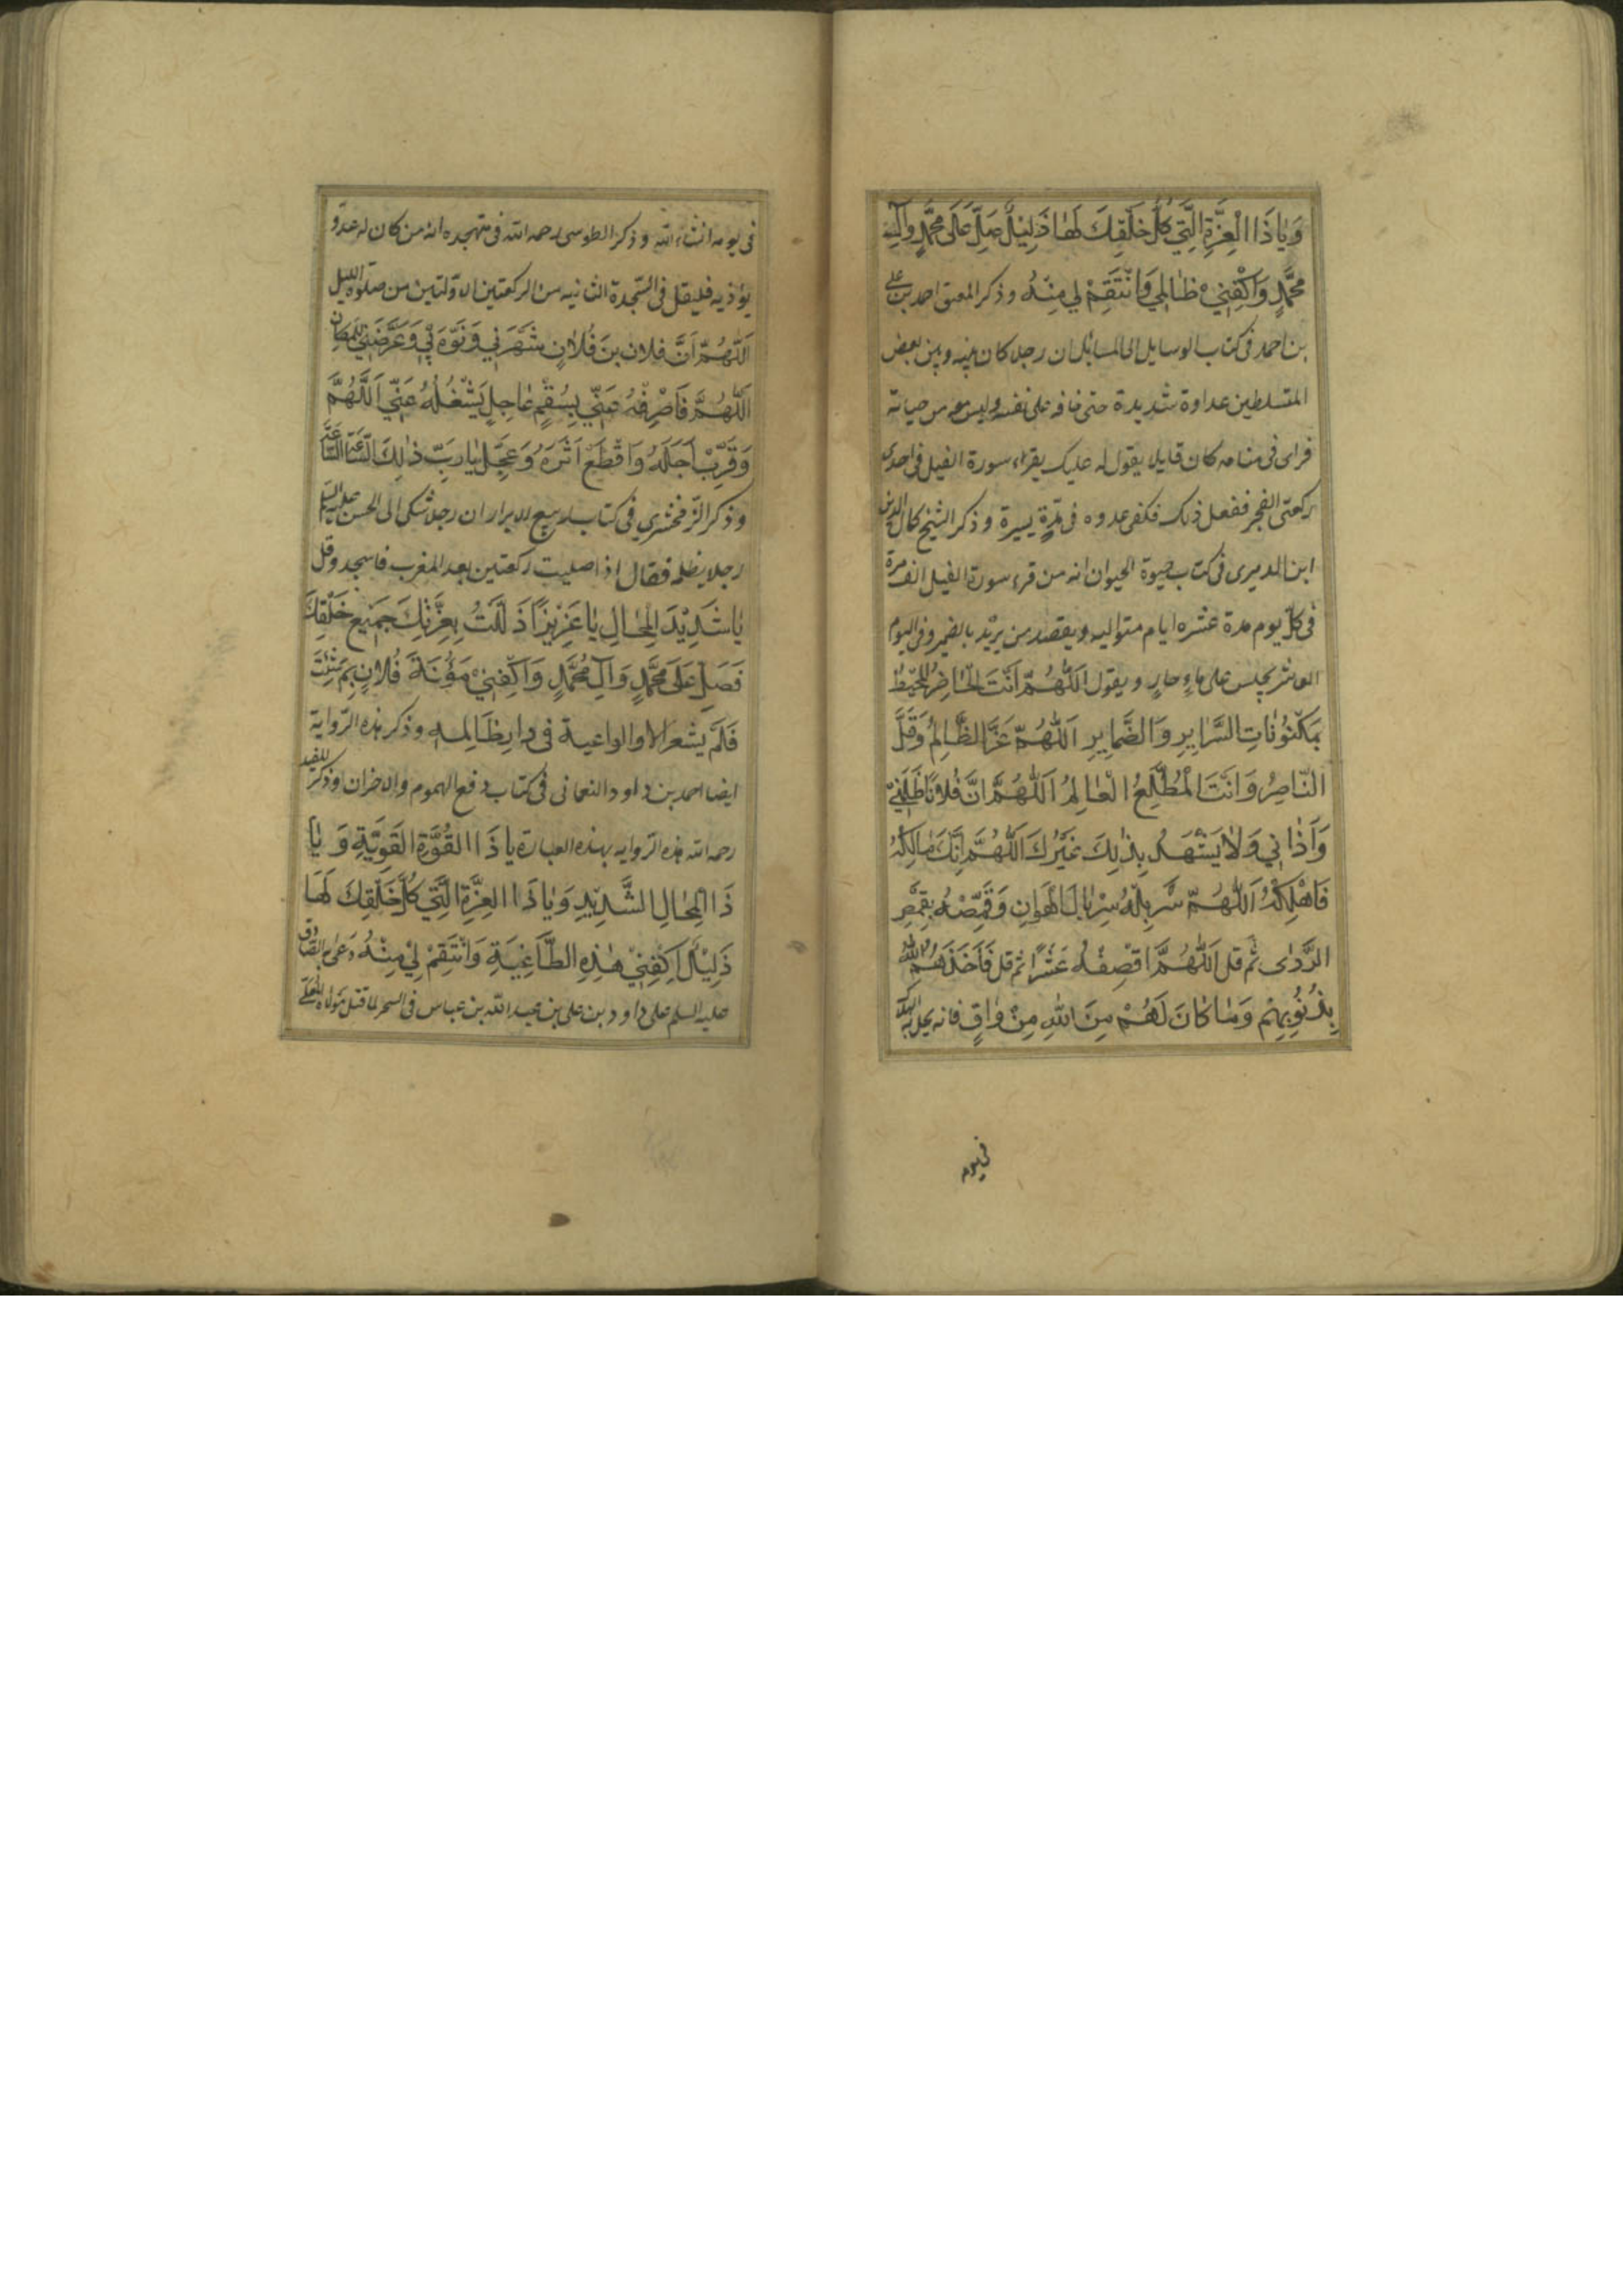 وَيَا ذَا الْعِزَّةِ الَّتِي كُلُّ خَلْقِكَ لَهَا ذَلِيلٌ صَلِّ عَلَى مُحَمَّدٍ وَآلِ
مُحَمَّدٍ وَاكْفِنِي ظَالِمِي وَانْتَقِمْ لِي مِنْهُ وذكر احمد بن علي
بن احمد فى كتاب الوسايل الى المسائل ان رجلا كان بينه وبين بعض
المتسلطين عداوة شديدة حتى خافه على نفسه وليس معه من حياته
فراى فى منامه كان قايلا يقول له عليك بقراءة سورة الفيل فى احدى
ركعتى الفجر ففعل ذلك فكفى عدوه فى مدّة يسيرة وذكر الشيخ كمال الدين
ابن الدميرى فى كتاب حيوة الحيوان انه من قرء سورة الفيل الف مرة
فى كل يوم مدة عشره ايام متواليه ويقصد من يريد بالضمير وفى اليوم
العاشر يجلس على ماء جارٍ ويقول اَللّٰهُمَّ اَنْتَ الْحَاضِرُ الْمُحِيطُ
بِمَكْنُونَاتِ السَّرَايِرِ وَالضَّمَايِرِ اَللّٰهُمَّ عَزَّ الظَّالِمُ وَقَلَّ
النَّاصِرُ وَاَنْتَ الْمُطَّلِعُ الْعَالِمُ اَللّٰهُمَّ اِنَّ فُلَانًا ظَلَمَنِي
وَاَذَانِي وَلَا يَشْهَدُ بِذٰلِكَ غَيْرُكَ اَللّٰهُمَّ اِنَّكَ مَالِكُهُ
فَاَهْلِكْهُ اَللّٰهُمَّ سَرْبِلْهُ سِرْبَالَ الْهَوَانِ وَقَمِّصْهُ بِقَمِيصِ
الرَّدٰى ثم قل اَللّٰهُمَّ اقْصِفْهُ عَشْرًا ثم قل فَاَخَذَهُمُ اللّٰهُ
بِذُنُوبِهِمْ وَمَا كَانَ لَهُمْ مِنَ اللّٰهِ مِنْ وَاقٍ فانه يحل به الهلاك
فى يومه
فى يومه انشاء الله وذكر الطوسى رحمه الله فى متهجده انه من كان له عدوّ
يؤذيه فليقل فى السّجدة الثانيه من الركعتين الاوّلتين من صلوة الليل
اَللّٰهُمَّ اَنَّ فلان بنَ فُلَانٍ شَهَرَنِي وَنَوَّهَ بِي وَعَرَّضَنِي لِلْمَكَارِهِ
اَللّٰهُمَّ فَاصْرِفْهُ عَنِّي بِسُقْمٍ عَاجِلٍ يَشْغُلُهُ عَنِّي اَللّٰهُمَّ
وَقَرِّبْ اَجَلَهُ وَاقْطَعْ اَثَرَهُ وَعَجِّلْ يَا رَبِّ ذٰلِكَ السَّاعَةَ السَّاعَةَ
وذكر الزّمخشري فى كتاب ربيع الابرار ان رجلا شكى الى الحسن عليه السلم
رجلا يظلمه فقال اذا صليت ركعتين بعد المغرب فاسجد وقل
يَا شَدِيْدَ الْمِحَالِ يَا عَزِيْزًا ذَلَّلْتُ بِعِزَّتِكَ جَمِيْعَ خَلْقِكَ
فَصَلِّ عَلَى مُحَمَّدٍ وَآلِ مُحَمَّدٍ وَاكْفِنِيْ مَؤُنَةَ فُلَانٍ بِمَ شِئْتَ
فَلَمْ يشعر الا والواعية فى دارِ ظَالِمه وذكر هذه الرّواية
ايضا احمد بن داود النعمانى فى كتاب دفع الهموم والاحزان وذكر المفيد
رحمه الله هذه الرّوايه بهذه العبارة يا ذَا الْقُوَّةِ الْقَوِيَّةِ وَيَا
ذَا الْمِحَالِ الشَّدِيْدِ وَيَا ذَا الْعِزَّةِ الَّتِي كُلُّ خَلْقِكَ لَهَا
ذَلِيْلٌ اكْفِنِيْ هٰذِهِ الطَّاغِيَةَ وَانْتَقِمْ لِيْ مِنْهُ ودعى به الصّادق
عليه السلم على داود بن على بن عبد الله بن عباس فى السحر لما قتل مولاه المعلّى